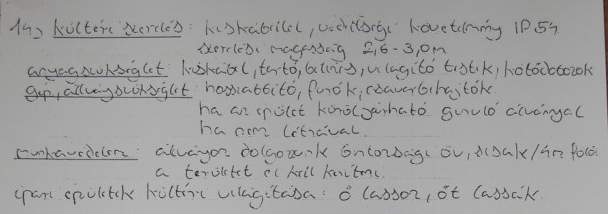 14, kültéri szerelés: kiskábellel, védettségi követelmény IP54
szerelési magasság 2,6-3,0m
anyagszükséglet: kiskábel, tartó, bilincs, világító testek, kötődobozok
gép, állványszükséglet: hosszabbító, fúrók, csavarbehajtók
ha az épület körüljárható guruló állvánnyal
ha nem létrával.
munkavédelem: állványon dolgozunk biztonsági öv, sisak/4m fölött
a területet el kell keríteni.
ipari épületek kültéri világítása: ő lassor, őt lassák.